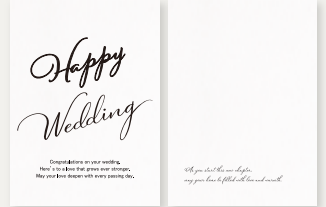 Happy
Wedding
Congratulations on your wedding.
Here's to a love that grows ever stronger.
May your love deepen with every passing day.
As you start this new chapter,
may your home be filled with love and warmth.